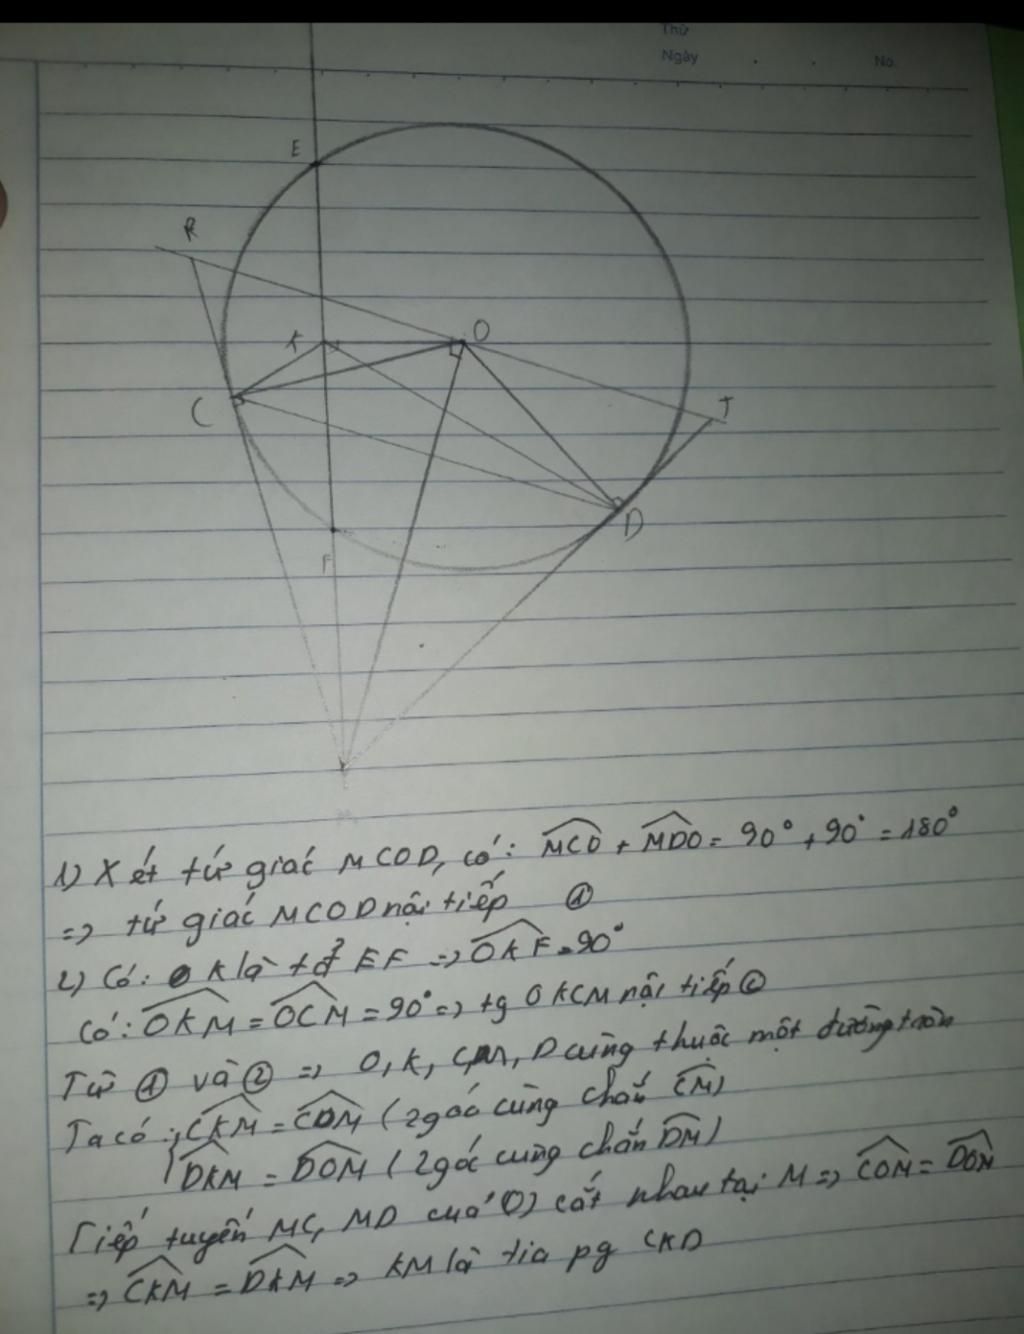 Thứ
Ngày . . No.
E
R
K
O
C
T
D
F
M
1) Xét tứ giác MCOD, có: MCO + MDO = 90° + 90° = 180°
=> tứ giác MCOD nội tiếp ①
2) Có: K là tđ EF => OKF = 90°
Có: OKM = OCM = 90° => tg OKCM nội tiếp ②
Từ ① và ② => O, K, C, M, D cùng thuộc một đường tròn
Ta có: { CKM = COM (2 góc cùng chắn CM)
DKM = DOM (2 góc cùng chắn DM)
Tiếp tuyến MC, MD của (O) cắt nhau tại M => COM = DOM
=> CKM = DKM => KM là tia pg CKD